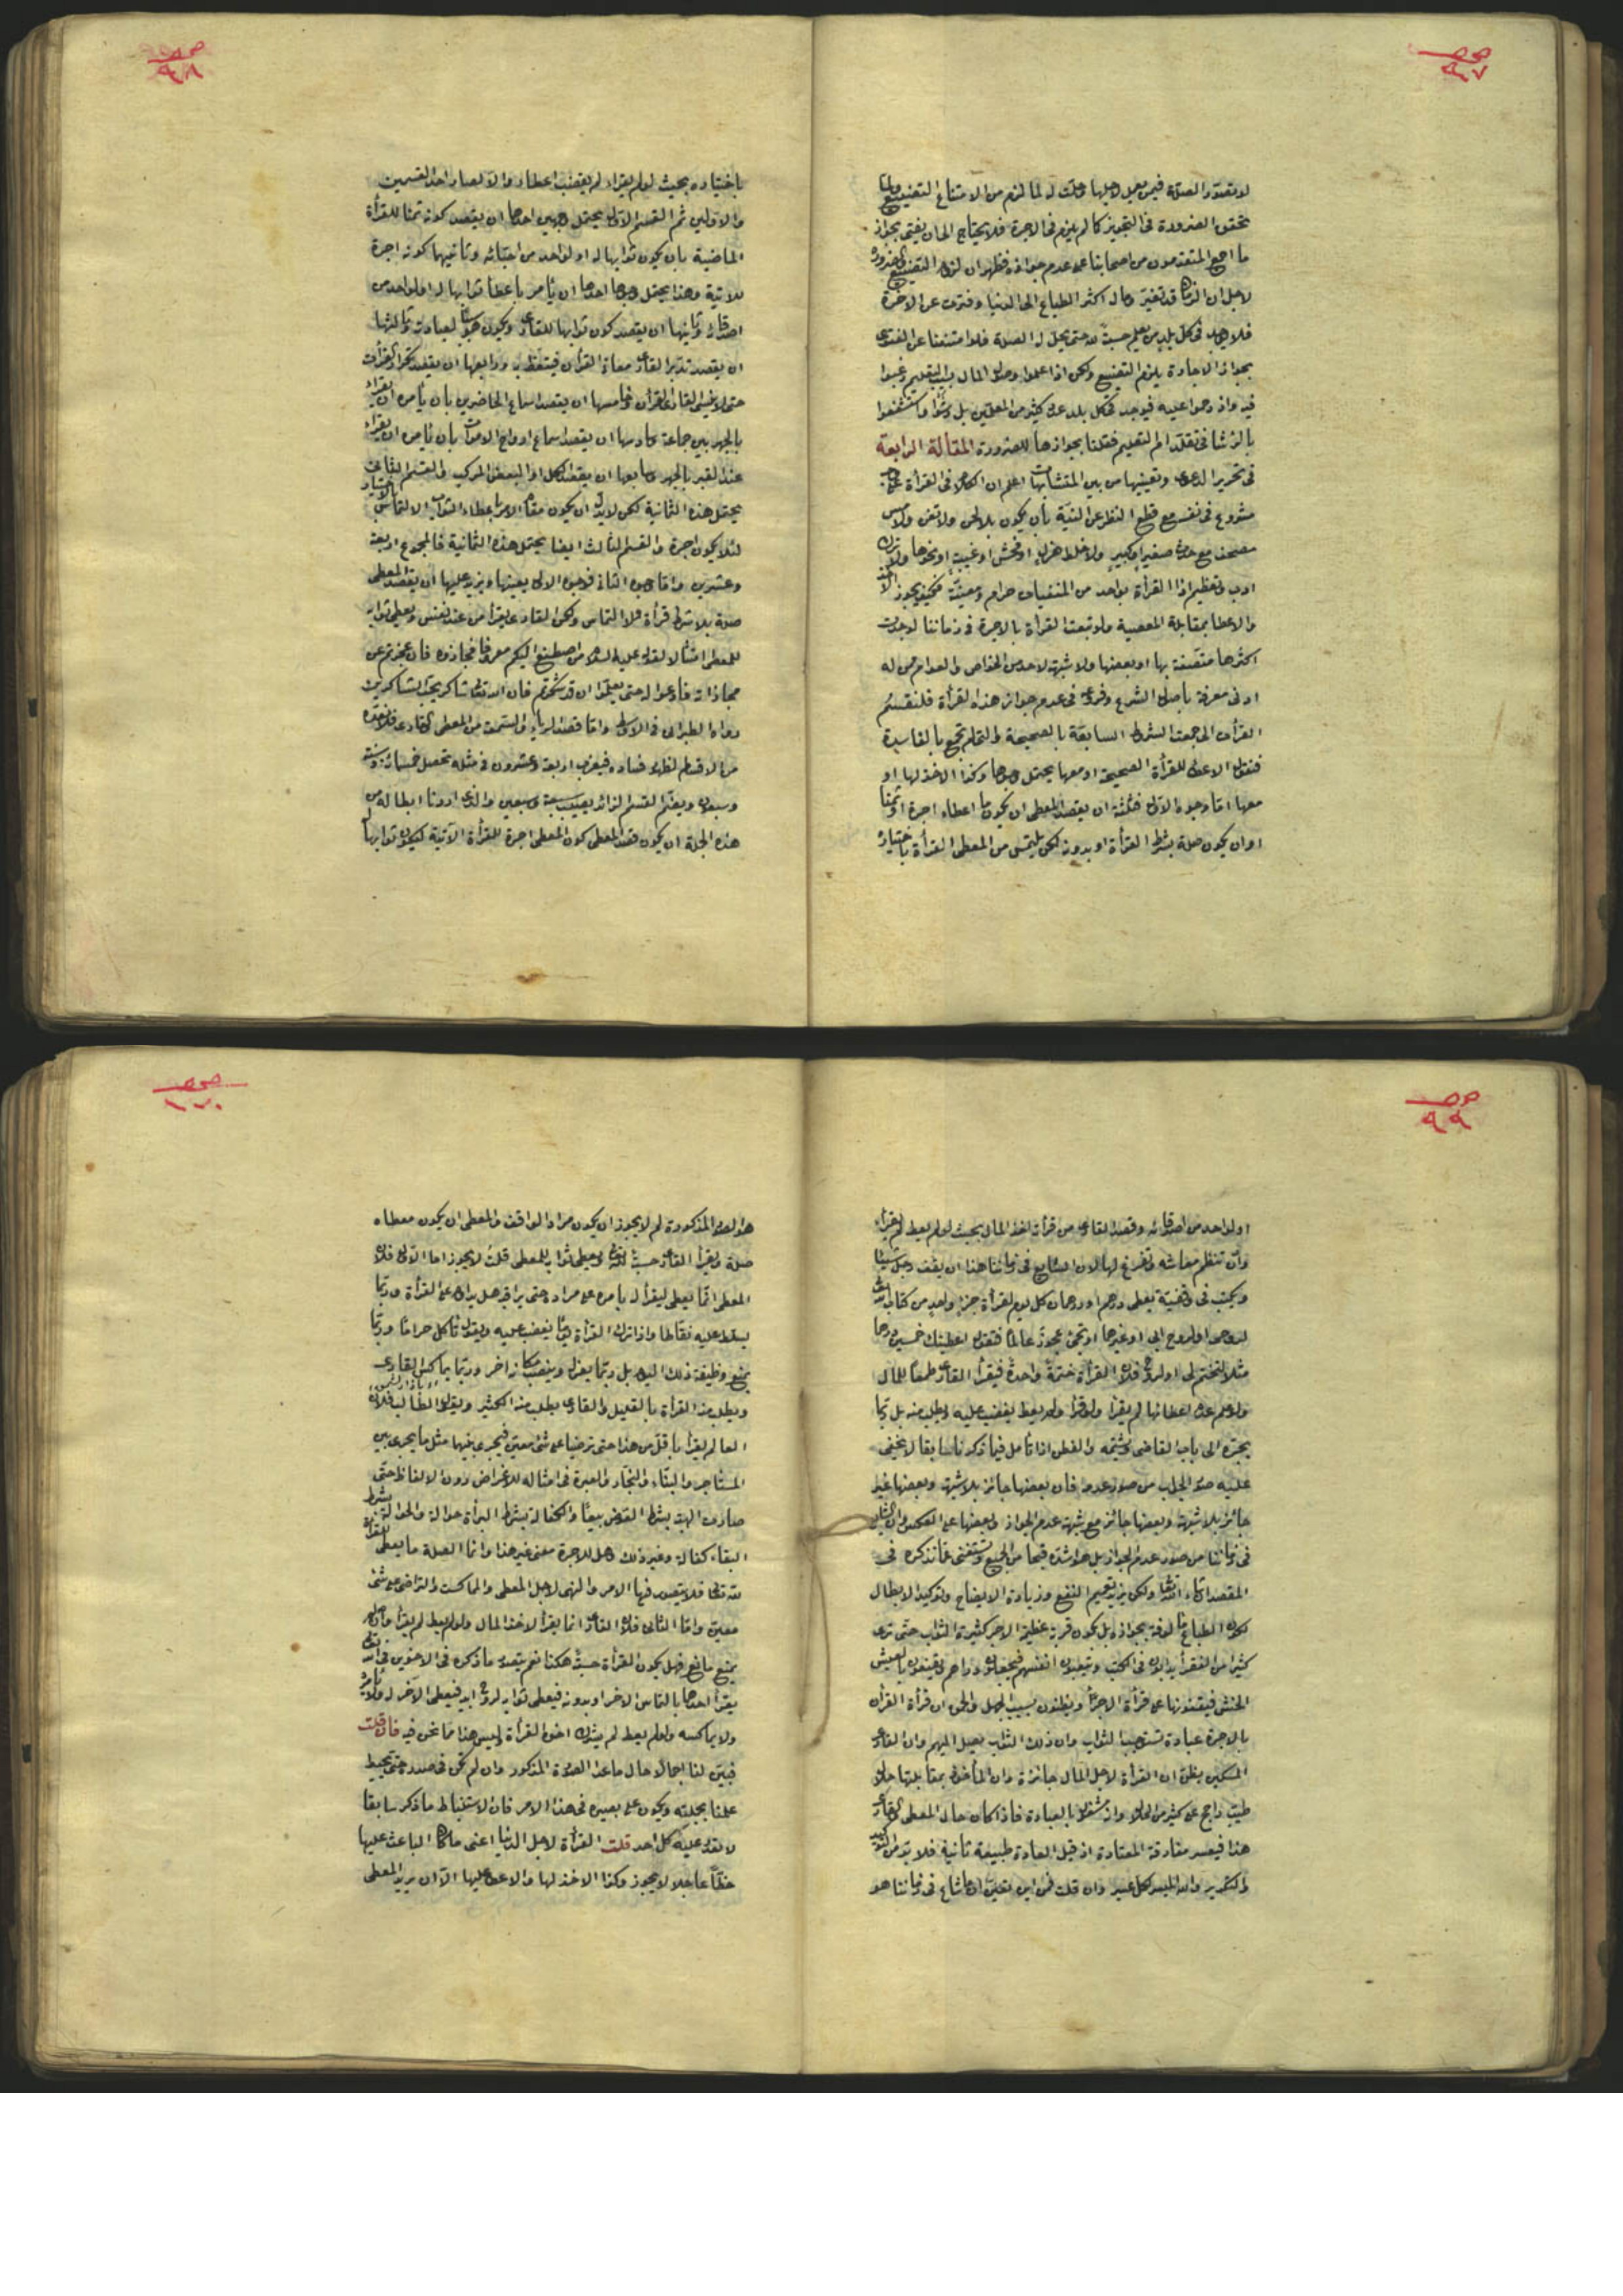 ص ٩٧
لا يقصد والصلة فيمن يعمل لاجلها وحلت له لما لزم من الامتناع التضييع ولما
تحقق الضرورة فى التجويز كما لم يلزم فى الاجرة فلا يحتاج الى ان يفتى بجواز
ما اجمع المتقدمون من اصحابنا على عدم جوازه فظهر ان لزوم التضييع والضرورة
لاجل ان الزمان قد تغير ومال اكثر الطباع الى الدنيا وفترت عن الاخرة
فلا يوجد فى كل بلد من يعلم حسبة لله حتى يحل له الصلة فلو امتنعنا عن الفتوى
بجواز الاجارة يلزم التضييع ولكن اذا علموا وصول المال بسبب التعليم رغبوا
فيه وازدحموا عليه فيوجد فى كل بلد عدد كثير من المعلمين بل رشوا واستشفعوا
بالرشا فى تقلد امر التعليم فقلنا بجوازها للضرورة المقالة الرابعة
فى تحرير الدعوى وتعيينها من بين المتشابهات اعلم ان الكلام فى القرأة على وجه
مشروع فى نفسه مع قطع النظر عن النية بأن يكون بلا لحن ولا تغن ولا مس
مصحف مع حدث صغير او كبير ولا خلط هزل او فحش او غيبة او نحوها ولا ترك
ادب وتعظيم اذ القرأة بواحد من المنفيات حرام ومعصية فكيف يجوز الاخذ
والاعطا بمقابلة المعصية ولو تتبعت القرأة بالاجرة فى زماننا لوجدت
اكثرها متصفة بها او ببعضها ولا شبهة لاحد من الخواص والعوام ممن له
ادنى معرفة باصول الشرع وفروعه فى عدم جواز هذه القرأة فلنقسم
القرأة التى جمعت الشروط السابقة بالصحيحة والتى لم تجمع بالفاسدة
فنقول الاعطاء للقرأة الصحيحة او معها يحتمل وجوها وكذا الاخذ لها او
معها اما وجوه الاول فثلثة ان يقصد المعطى ان يكون ما اعطاه اجرة او ثمنا
او ان يكون صلة بشرط القرأة او بدونه لكن يلتمس من المعطى القرأة باختياره
ص ٩٨
باختياره بحيث لو لم يقرأ لم يغضب اعطاه والا لصار احد القسمين
والاولين ثم القسم الاول يحتمل وجهين احدهما ان يقصد كونه ثمنا للقرأة
الماضية بان يكون ثوابها له او لواحد من احبائه وثانيهما كونه اجرة
للاتية وهذا يحتمل وجوها احدها ان يأمر باعطا ثوابها له او لواحد من
اصدقائه وثانيها ان يقصد كون ثوابها للقارى ويكون هو سببا لعبادته وثالثها
ان يقصد تدبر القارى معانى القرأن فيتعظ به ورابعها ان يقصد تكرار القرأت
حتى لا ينسى القارى القرأن وخامسها ان يقصد اسماع الحاضرين بان يأمره ان يقرأ
بالجهر بين جماعة وسادسها ان يقصد اسماع ارواح الاموات بان يأمره ان يقرأ
عند القبر بالجهر وسابعها ان يقصد الكل او البعض المركب والقسم الثانى
يحتمل هذه الثمانية لكن لابد ان يكون مقام الامر باعطاء الثواب الالتماس
لئلا يكون اجرة والقسم الثالث ايضا يحتمل هذه الثمانية فالمجموع اربعة
وعشرين واما وجوه الثانى فوجوه الاول بعينها ويزيد عليها ان يقصد المعطى
صلة بلا شرط قرأة ولا التماس ولكن القارى يقرأ من عند نفسه ويعطى ثوابه
للمعطى امتثالا لقوله عليه السلام من اصطنع اليكم معروفا فجازوه فان عجزتم عن
مجازاته فادعوا له حتى يعلم ان قد شكرتم فان الله تعالى شاكر يحب الشاكرين
رواه الطبرانى فى الاوسط واما قصد الرياء والسمعة من المعطى والقارى فلم نعده
من الاقسام لظهور فساده فيضرب اربعة وعشرون فى مثله تحصل خمسمائة وستة
وسبعون ويضم القسم الزائد يصير سبعة وسبعين والذى اردنا ابطاله من
هذه الجملة ان يكون قصد المعطى كون المعطى اجرة للقرأة الآتية ليكون ثوابها له
ص ٩٩
او لواحد من اصدقائه وقصد القارى من قرأته اخذ المال بحيث لو لم يعط لم يقرأ
وان تنظم معاشه وتفرغ لها لان الشايع فى زماننا هذا ان يقف رجل شيئا
ويكتب فى وقفيته يعطى درهم او درهمان كل يوم لقرأة جزء واحد من كتاب الله
لروحى او لروح ابى او غيرهما او تجئ عجوز عالما فتقول اعطيتك خمسين درهما
مثلا لتختم لى او لروح فلان القرأة ختمة واحدة فيقرأ القارى طمعا للمال
ولو علم عدم اعطائها لم يقرأ ولو قرأ ولم يعط يغضب عليه ويطلب منه بل ربما
يجره الى باب القاضى ويشتمه والفطن اذا تأمل فيما ذكرنا سابقا لا يخفى
عليه صور الجواز من صور عدمه فان بعضها جائز بلا شبهة وبعضها غير
جائز بلا شبهة وبعضها جائز مع شبهة عدم الجواز وبعضها على العكس وان الشايع
فى زماننا من صور عدم الجواز بل هو اشد قبحا من الجميع وتستغنى عما نذكره فى
المقصد ان شاء الله تعالى ولكن يزيد تعميم النفع وزيادة الايضاح وتوكيد الابطال
لكون الطباع مألوفة بجوازه بل بكونه قربة عظيمة الاجر كثيرة الثواب حتى ترى
كثيرا من الفقرأ يدأبون فى الكتب ويتعبون انفسهم فيجمعون دراهم ويقنعون بالعيش
الخشن فيقفونها على قرأة الاجزأ ويظنون بسبب الجهل والحمق ان قرأة القرأن
بالاجرة عبادة تستوجب الثواب وان ذلك الثواب يصل اليهم وان القارى
المسكين يظن ان القرأة لاجل المال جائزة وان المأخوذ بمقابلتها حلال
طيب راجح على كثير من الحلال وانه مشغول بالعبادة فاذا كان حال المعطى والقارى
هذا فيعسر مفارقة المعتادة اذ قيل العادة طبيعة ثانية فلا بد من التوكيد
والتكرير والله الميسر لكل عسير وان قلت من اين تعين ان ما شاع فى زماننا هو
ص ١٠٠
هو الصور المذكورة لم لا يجوز ان يكون مراد الواقف والمعطى ان يكون معطاه
صلة ويقرأ القارى حسبة لله تعالى ويعطى ثوابه للمعطى قلت لا يجوز اما الاول فلان
المعطى انما يعطى ليقرأ له يأمره على مراده حتى يراقبه هل يداوم على القرأة وربما
يسلط عليه نقاطا واذا ترك القرأة يوما يغضب عليه ويقول تأكل حراما وربما
يمنع وظيفة ذلك اليوم بل ربما يعزل وينصب مكانه اخر وربما يماكس القارى
ويطلب منه القرأة بالقليل والقارى يطلب منه الكثير ويقول الطالب فلان
العالم يقرأ باقل من هذا حتى ترضيا على شئ معين فيجرى بينهما مثل ما يجرى بين
المستأجر والبناء والنجار والعبرة فى امثاله للاغراض دون الالفاظ حتى
صارت الهبة بشرط العوض بيعا والكفالة بشرط البرأة حوالة والحوالة بشرط
البقاء كفالة وغير ذلك وهل للاجرة معنى غير هذا وانما الصلة ما يعطى للقرأة
لله تعالى فلا يتصور فيها الامر والنهى لاجل المعطى والمماكسة والتراضى على شئ
معين واما الثانى فلان القارى انما يقرأ لاخذ المال ولو لم يعط لم يقرأ
يمنع مانع فهل يكون القرأة حسبة هكذا نعم يتصور ما ذكره فى الاخوين فى الله تعالى
يقرأ احدهما بالتماس الاخر او بدونه فيعطى ثوابه لروح ابيه فيعطى الآخر له
ولا يماكسه ولو لم يعط لم يترك اخوه القرأة وليس هذا مما نحن فيه فان قلت
فبين لنا اجمالا حال ما عدا الصورة المذكور وان لم تكن فى صدده حتى يحيط
علمنا بجملته ويكون على بصيرة فى هذا الامر فان الاستنباط ما ذكر سابقا
لا يقدر عليه كل احد قلت القرأة لاجل الدنيا اعنى ما كان الباعث عليها
حظا عاجلا لا يجوز وكذا الاخذ لها والاعطاء عليها الا ان يريد المعطى